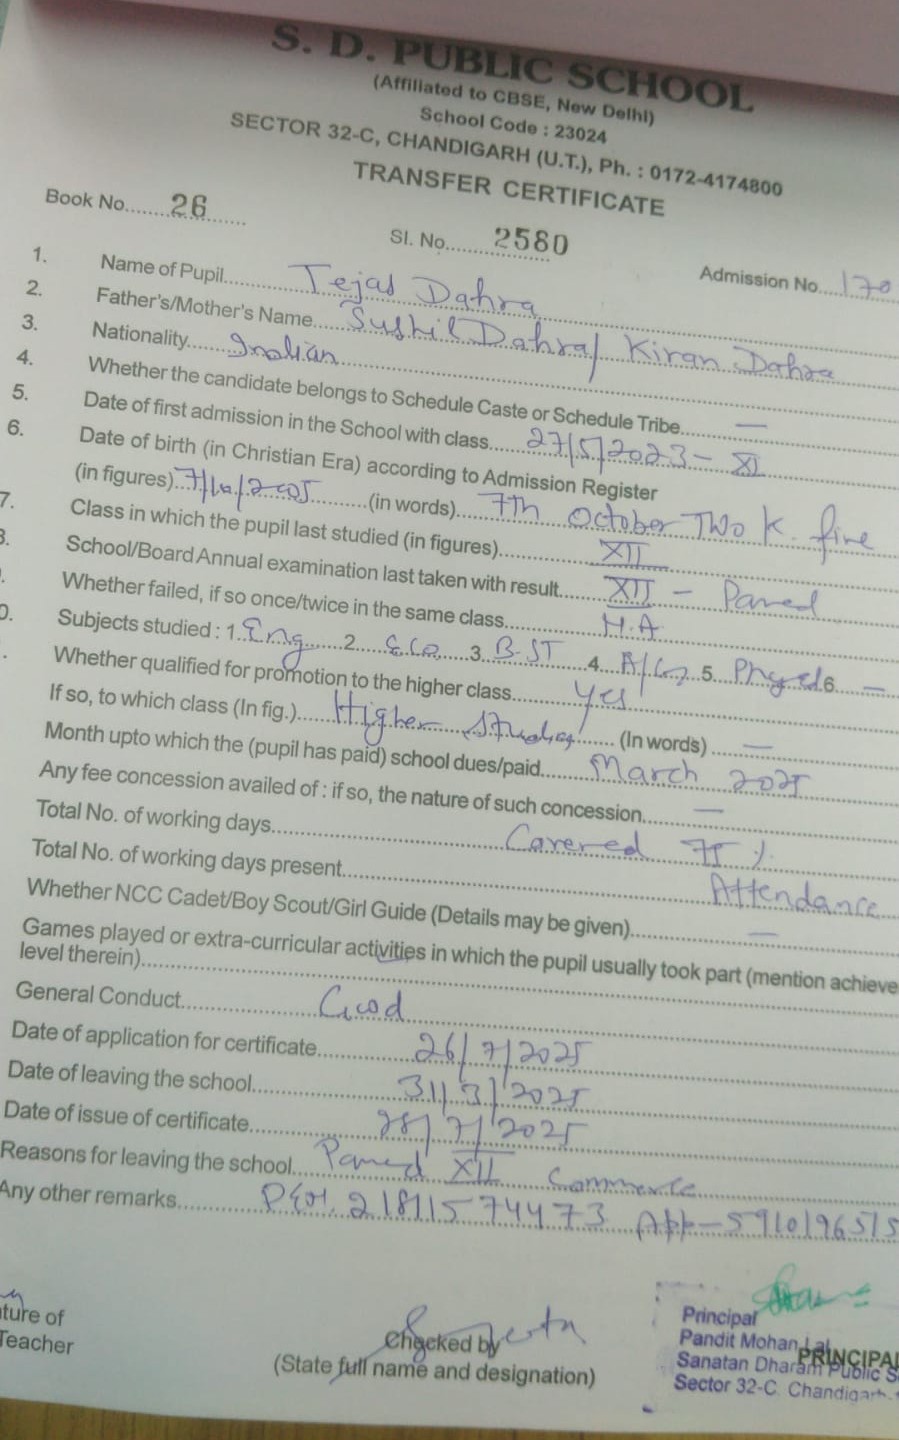 S. D. PUBLIC SCHOOL
(Affiliated to CBSE, New Delhi)
School Code : 23024
SECTOR 32-C, CHANDIGARH (U.T.), Ph. : 0172-4174800
TRANSFER CERTIFICATE
Book No. 26 Sl. No. 2580 Admission No. 170
1. Name of Pupil Tejas Dahra
2. Father's/Mother's Name Sushil Dahra/ Kiran Dahra
3. Nationality Indian
4. Whether the candidate belongs to Schedule Caste or Schedule Tribe —
5. Date of first admission in the School with class 27/5/2023 - XI
6. Date of birth (in Christian Era) according to Admission Register
(in figures) 7/10/2005 (in words) 7th October Two K. five
7. Class in which the pupil last studied (in figures) XII
School/Board Annual examination last taken with result XII - Passed
Whether failed, if so once/twice in the same class N.A
Subjects studied : 1. Eng 2. Eco 3. B.ST 4. A/c 5. Phy.ed 6. —
Whether qualified for promotion to the higher class yes
If so, to which class (In fig.) Higher Studies (In words) —
Month upto which the (pupil has paid) school dues/paid March 2025
Any fee concession availed of : if so, the nature of such concession —
Total No. of working days Covered 75 %
Total No. of working days present Attendance
Whether NCC Cadet/Boy Scout/Girl Guide (Details may be given) —
Games played or extra-curricular activities in which the pupil usually took part (mention achieve
level therein)
General Conduct Good
Date of application for certificate 26/7/2025
Date of leaving the school 31/3/2025
Date of issue of certificate 28/7/2025
Reasons for leaving the school Passed XII Commerce
Any other remarks 21811574473
ture of
Teacher
Checked by
(State full name and designation)
Principal
Pandit Mohan Lal
Sanatan Dharam Public S
Sector 32-C. Chandigarh
PRINCIPA